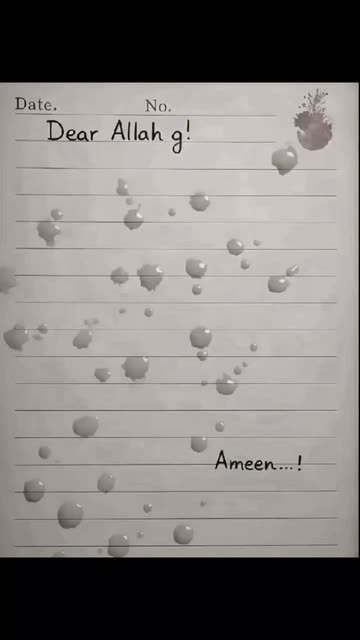 Date. No.
Dear Allah g!
Ameen...!